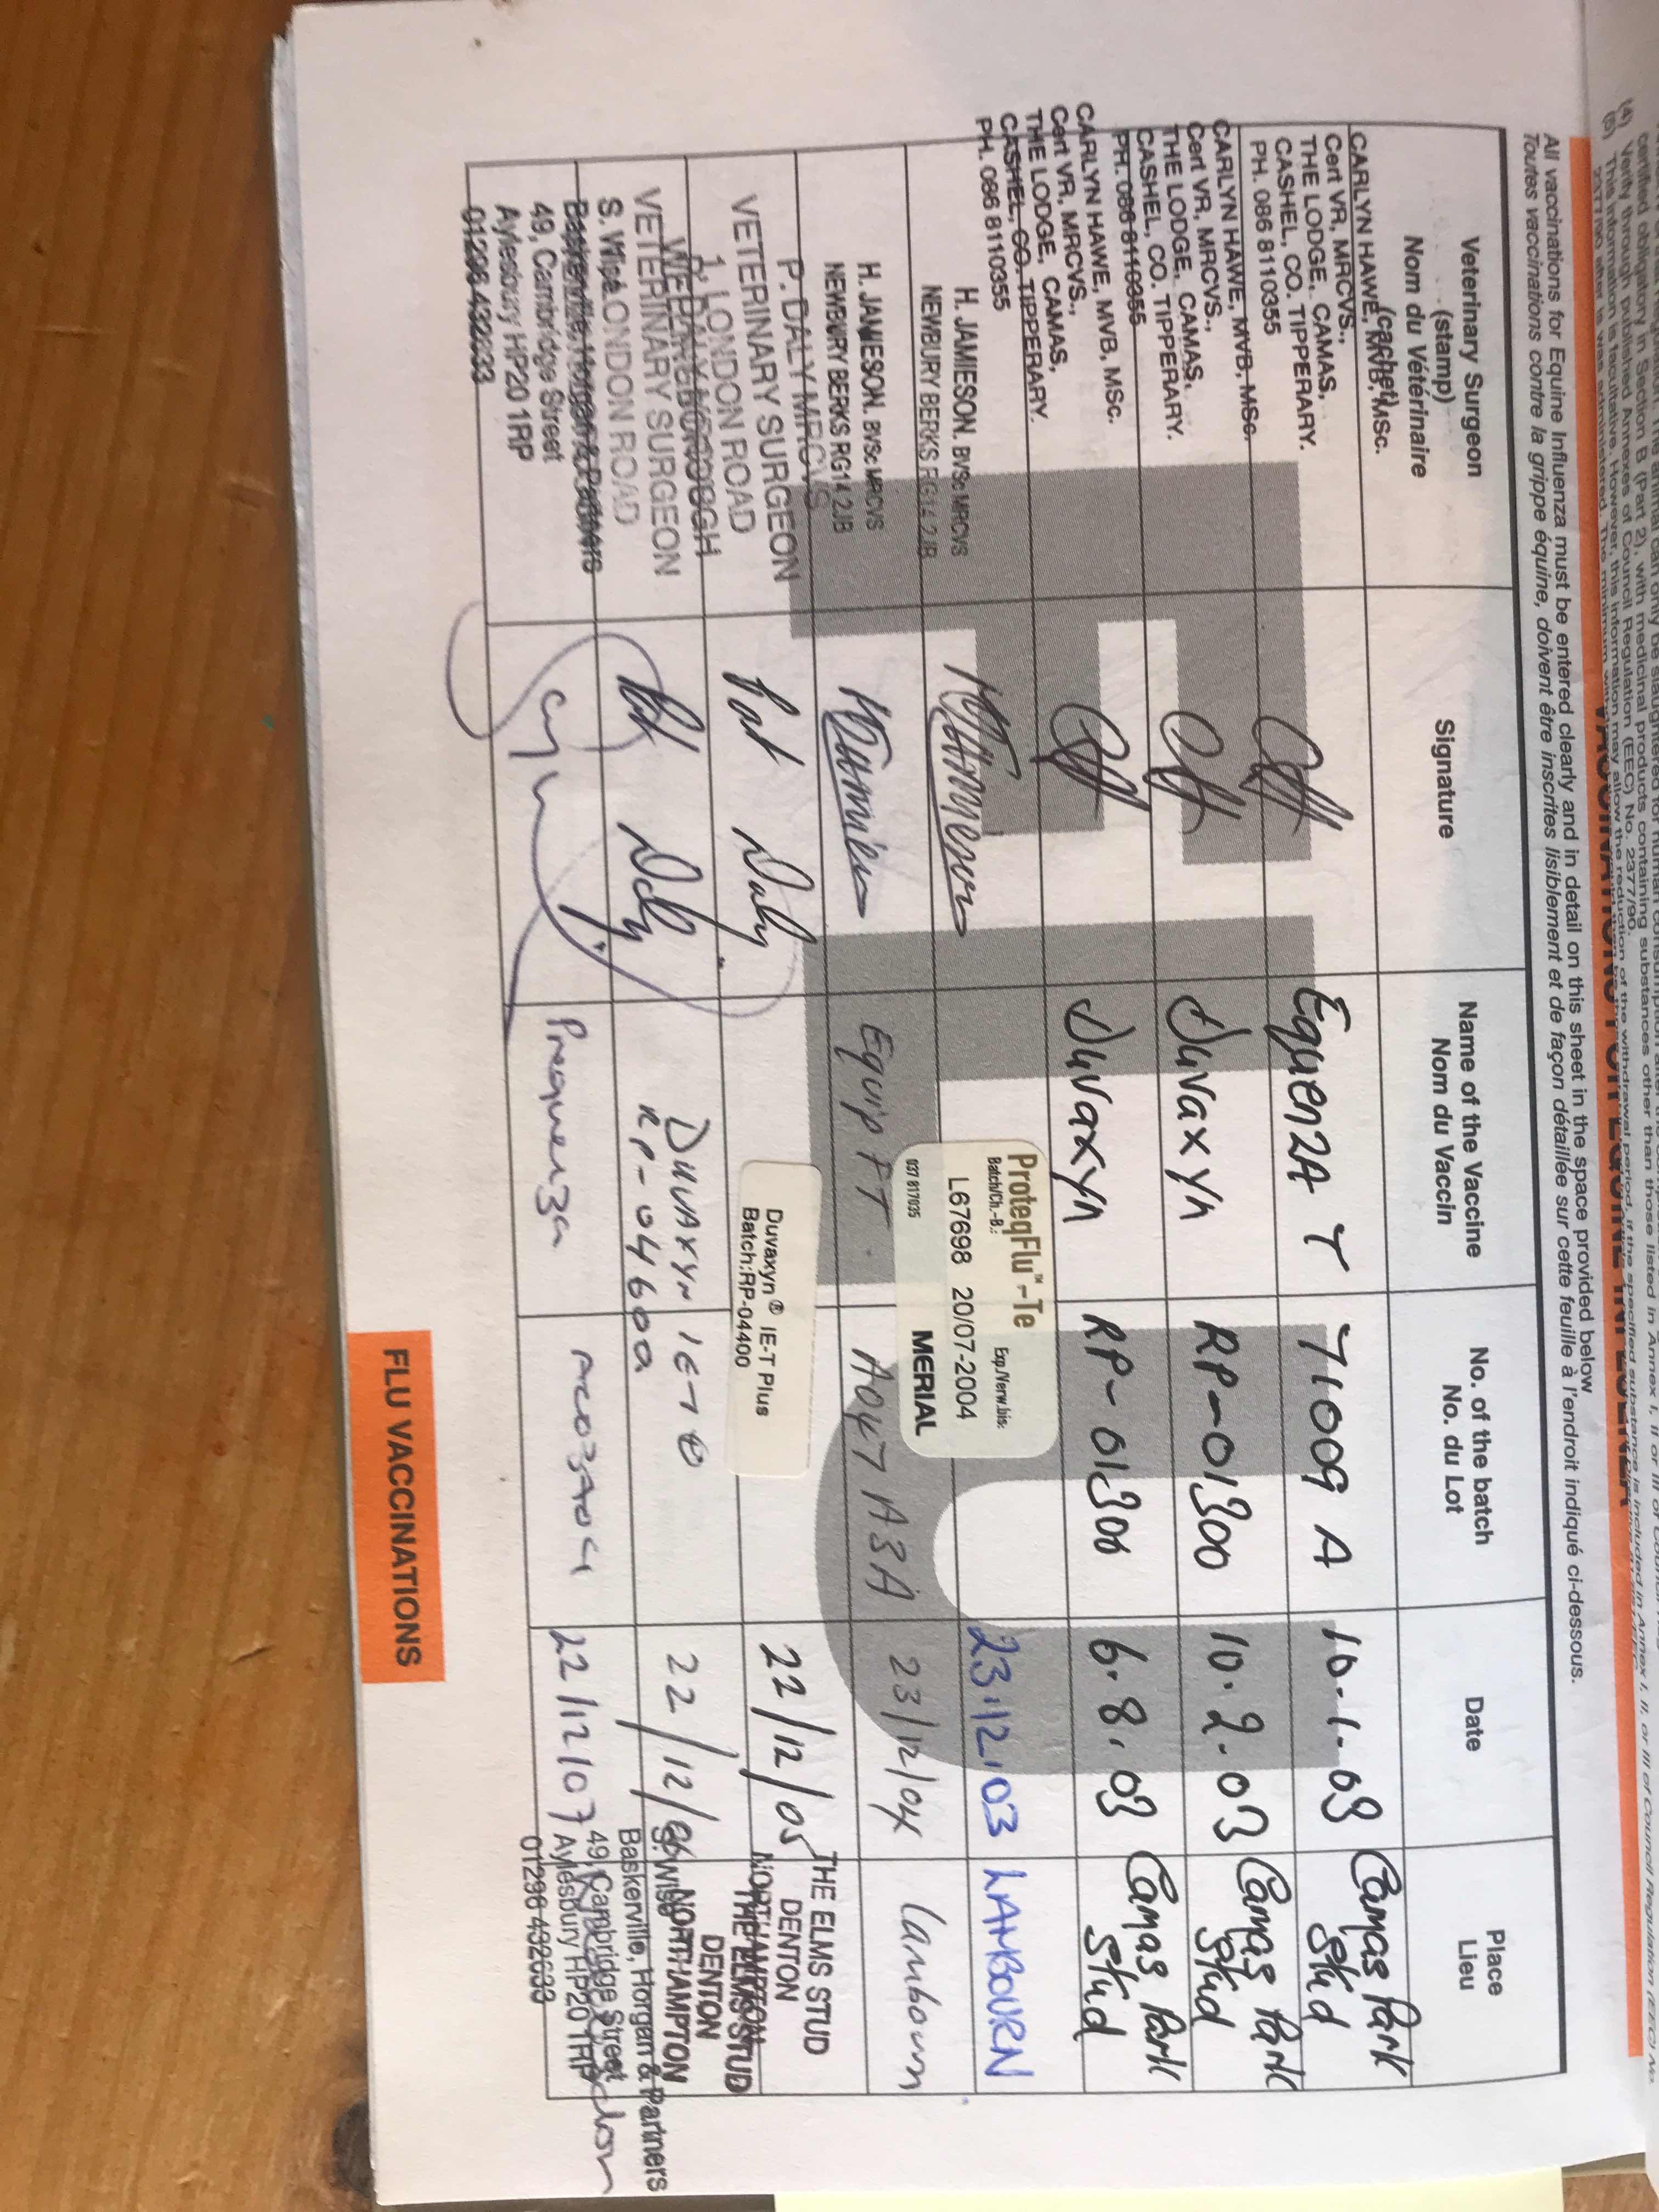 All vaccinations for Equine Influenza must be entered clearly and in detail on this sheet in the space provided below
Toutes vaccinations contre la grippe équine, doivent être inscrites lisiblement et de façon détaillée sur cette feuille à l'endroit indiqué ci-dessous.
Veterinary Surgeon
(stamp)
Nom du Vétérinaire
(cachet)
Signature
Name of the Vaccine
Nom du Vaccin
No. of the batch
No. du Lot
Date
Place
Lieu
CARLYN HAWE, MVB, MSc.
Cert VR, MRCVS.,
THE LODGE, CAMAS,
CASHEL, CO. TIPPERARY.
PH. 086 8110355
Equenza T
71009 A
10.1.03
Camas Park
Stud
CARLYN HAWE, MVB, MSc.
Cert VR, MRCVS.,
THE LODGE, CAMAS,
CASHEL, CO. TIPPERARY.
PH. 086 8110355
Duvaxyn
RP-01300
10.2.03
Camas Park
Stud
CARLYN HAWE, MVB, MSc.
Cert VR, MRCVS.,
THE LODGE, CAMAS,
CASHEL, CO. TIPPERARY.
PH. 086 8110355
Duvaxyn
RP-01300
6.8.03
Camas Park
Stud
H. JAMIESON. BVSc MRCVS
NEWBURY BERKS RG14 2JB
ProteqFlu™-Te
Batch/Ch.-B.:
Exp./Verw.bis:
L67698 20/07-2004
037 817035
MERIAL
23.12.03
LAMBOURN
H. JAMIESON. BVSc MRCVS
NEWBURY BERKS RG14 2JB
Equip FT
A047 A3A
23/12/04
Lambourn
P. DALY MRCVS
VETERINARY SURGEON
1, LONDON ROAD
Pat Daly
Duvaxyn® IE-T Plus
Batch:RP-04400
22/12/05
THE ELMS STUD
DENTON
NORTHAMPTON
VETERINARY SURGEON
LONDON ROAD
Pat Daly
DUVAXYN IET
RP-04600
22/12/06
THE ELMS STUD
DENTON
NORTHAMPTON
S. Wise
Baskerville, Horgan & Partners
49, Cambridge Street
Aylesbury HP20 1RP
01296 432633
Prequenza
22/12/07
S. Wise
Baskerville, Horgan & Partners
49, Cambridge Street
Aylesbury HP20 1RP
01296 432633
FLU VACCINATIONS